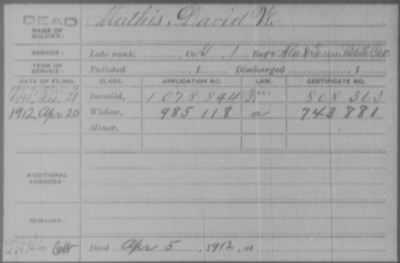 DEAD
NAME OF SOLDIER: Mathis, David W.
SERVICE: Late rank, Co. G 1 Reg't Ala. & Tenn. Vidette Cav.
TERM OF SERVICE: Enlisted , 1 Discharged , 1
DATE OF FILING. CLASS. APPLICATION NO. LAW. CERTIFICATE NO.
Invalid, 1078844 808363
1912, Apr 20 Widow, 985118 a 743881
Minor,
ADDITIONAL SERVICES:
REMARKS:
Died Apr 5, 1912, at